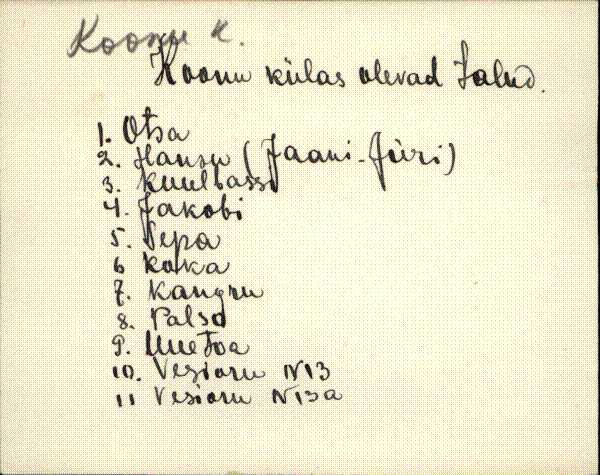 Koonu k.
Koonu külas olevad talud.
1. Otsa
2. Hansu (Jaani-Jüri)
3. Kuulbassi
4. Jakobi
5. Sepa
6 Koka
7. Kangru
8. Palso
9. Uuetoa
10. Vesioru N13
11 Vesioru N13a